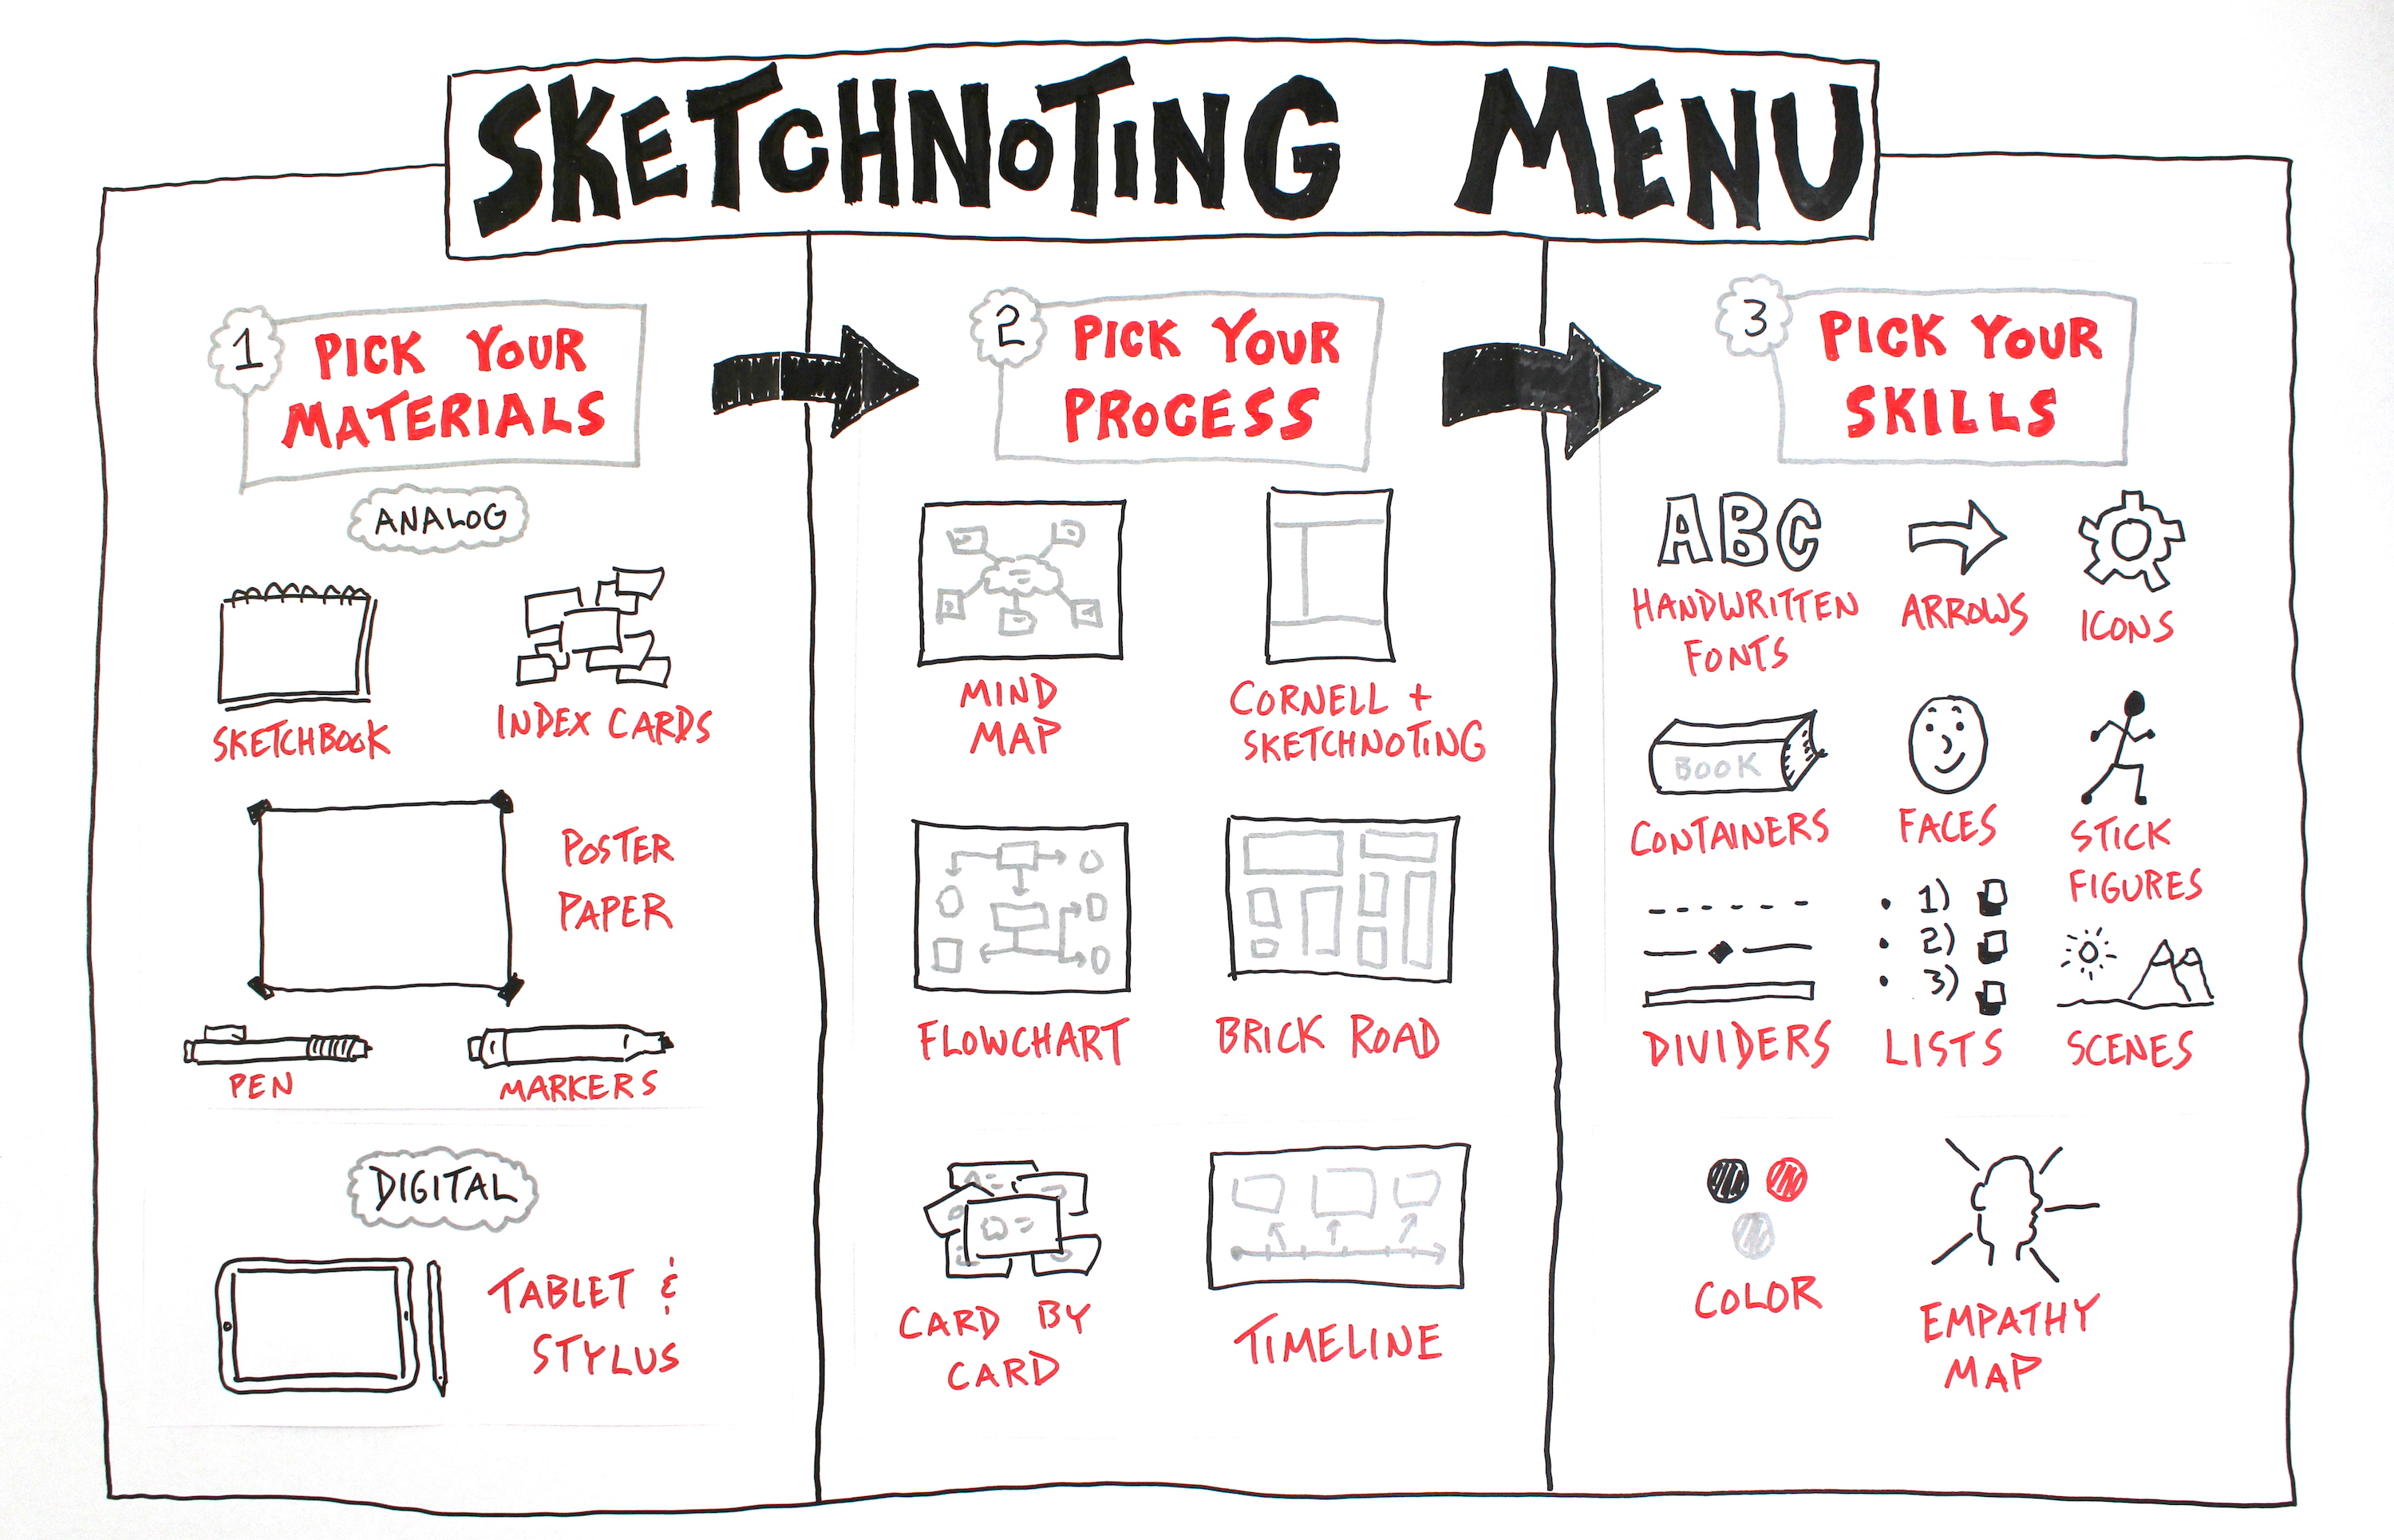 SKETCHNOTING MENU
1
PICK YOUR
MATERIALS
ANALOG
SKETCHBOOK
INDEX CARDS
POSTER
PAPER
PEN
MARKERS
DIGITAL
TABLET &
STYLUS
2
PICK YOUR
PROCESS
MIND
MAP
CORNELL +
SKETCHNOTING
FLOWCHART
BRICK ROAD
CARD BY
CARD
TIMELINE
3
PICK YOUR
SKILLS
ABC
HANDWRITTEN
FONTS
ARROWS
ICONS
BOOK
CONTAINERS
FACES
STICK
FIGURES
DIVIDERS
1)
2)
3)
LISTS
SCENES
COLOR
EMPATHY
MAP